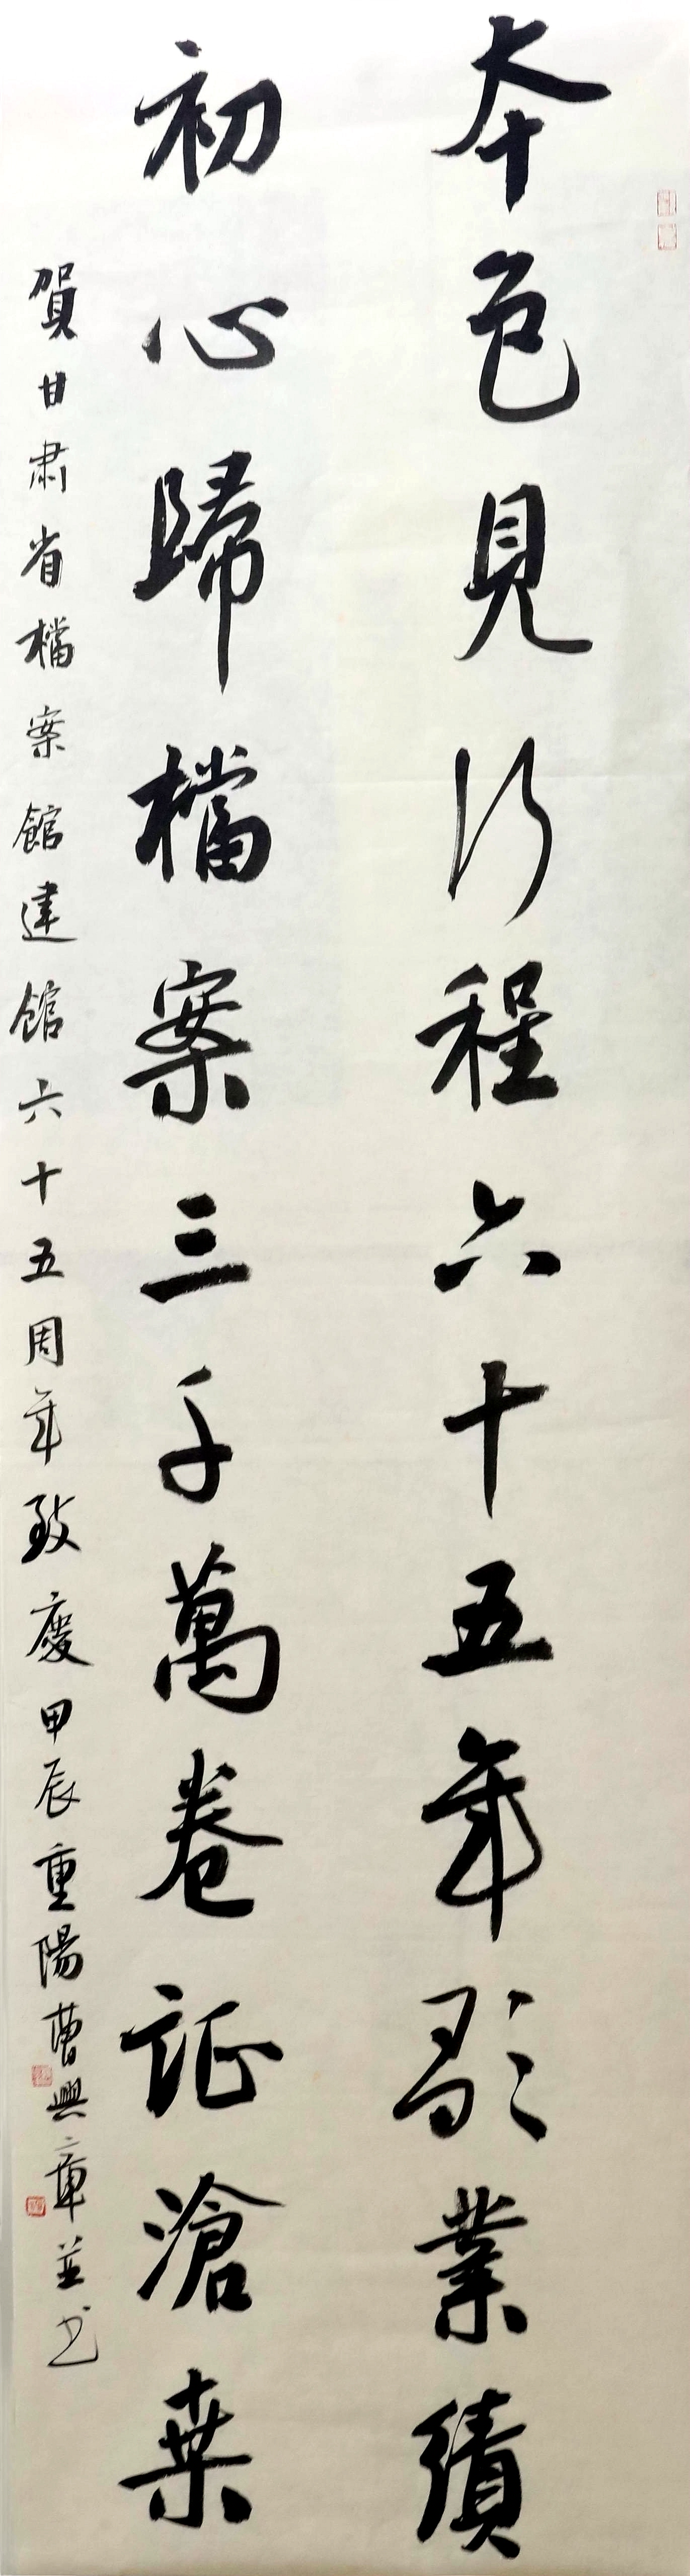 本色見行程六十五年顯業績
初心歸檔案三千萬卷証滄桒
賀甘肃省檔案館建館六十五周年致慶甲辰重陽曹興章並书